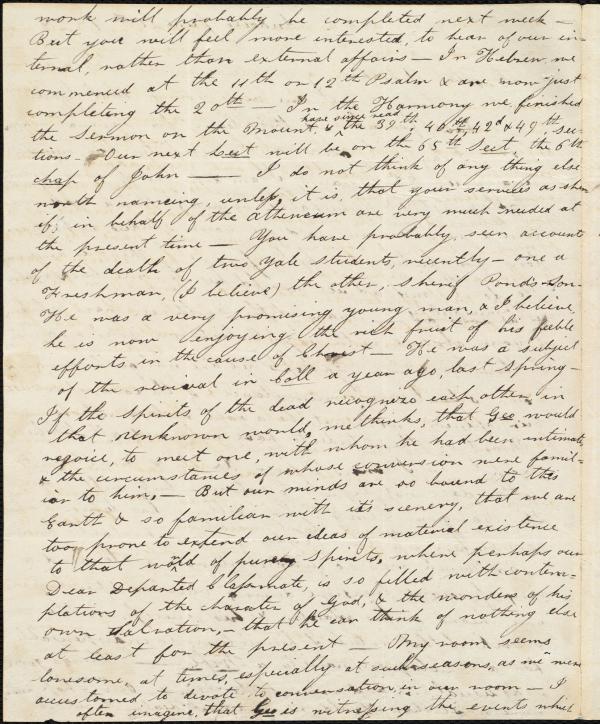 work will probably be completed next week —
But you will feel more interested, to hear of our in-
ternal, rather than external affairs — In Hebrew, we
commenced at the 11th or 12th Psalm & are now just
completing the 20th — In the Harmony we finished
have since read
the Sermon on the Mount, & the 39th, 40th, 42d & 49th, sec-
tions — Our next Lect will be on the 65th Sect, the 6th
chap of John — I do not think of any thing else
worth naming, unless, it is, that your services as sher
if, in behalf of the Atheneum are very much needed at
the present time — You have probably seen account
of the death of two Yale students, recently — one a
Freshman, (I believe) the other, Sherif Pond's Son
He was a very promising young man, & I believe,
he is now enjoying the rich fruit of his feeble
efforts in the cause of Christ — He was a subject
of the revival in Coll a year ago, last Spring —
If the spirits of the dead recognize each other, in
that unknown world, methinks, that Geo would
rejoice, to meet one, with whom he had been intimate
& the circumstances of whose conversion were famil-
iar to him. — But our minds are so bound to this
Earth & so familiar with it's scenery, that we are
too prone to extend our ideas of material existence
to that world of pure spirits, where perhaps our
Dear Departed Classmate, is so filled with contem-
plations of the charater of God, & the wonders of his
own salvation, — that he can think of nothing else
at least for the present — My room seems
lonesome, at times, especially at such seasons, as we were
accustomed to devote to conversation, in our room — I
often imagine, that Geo is witnessing the events which